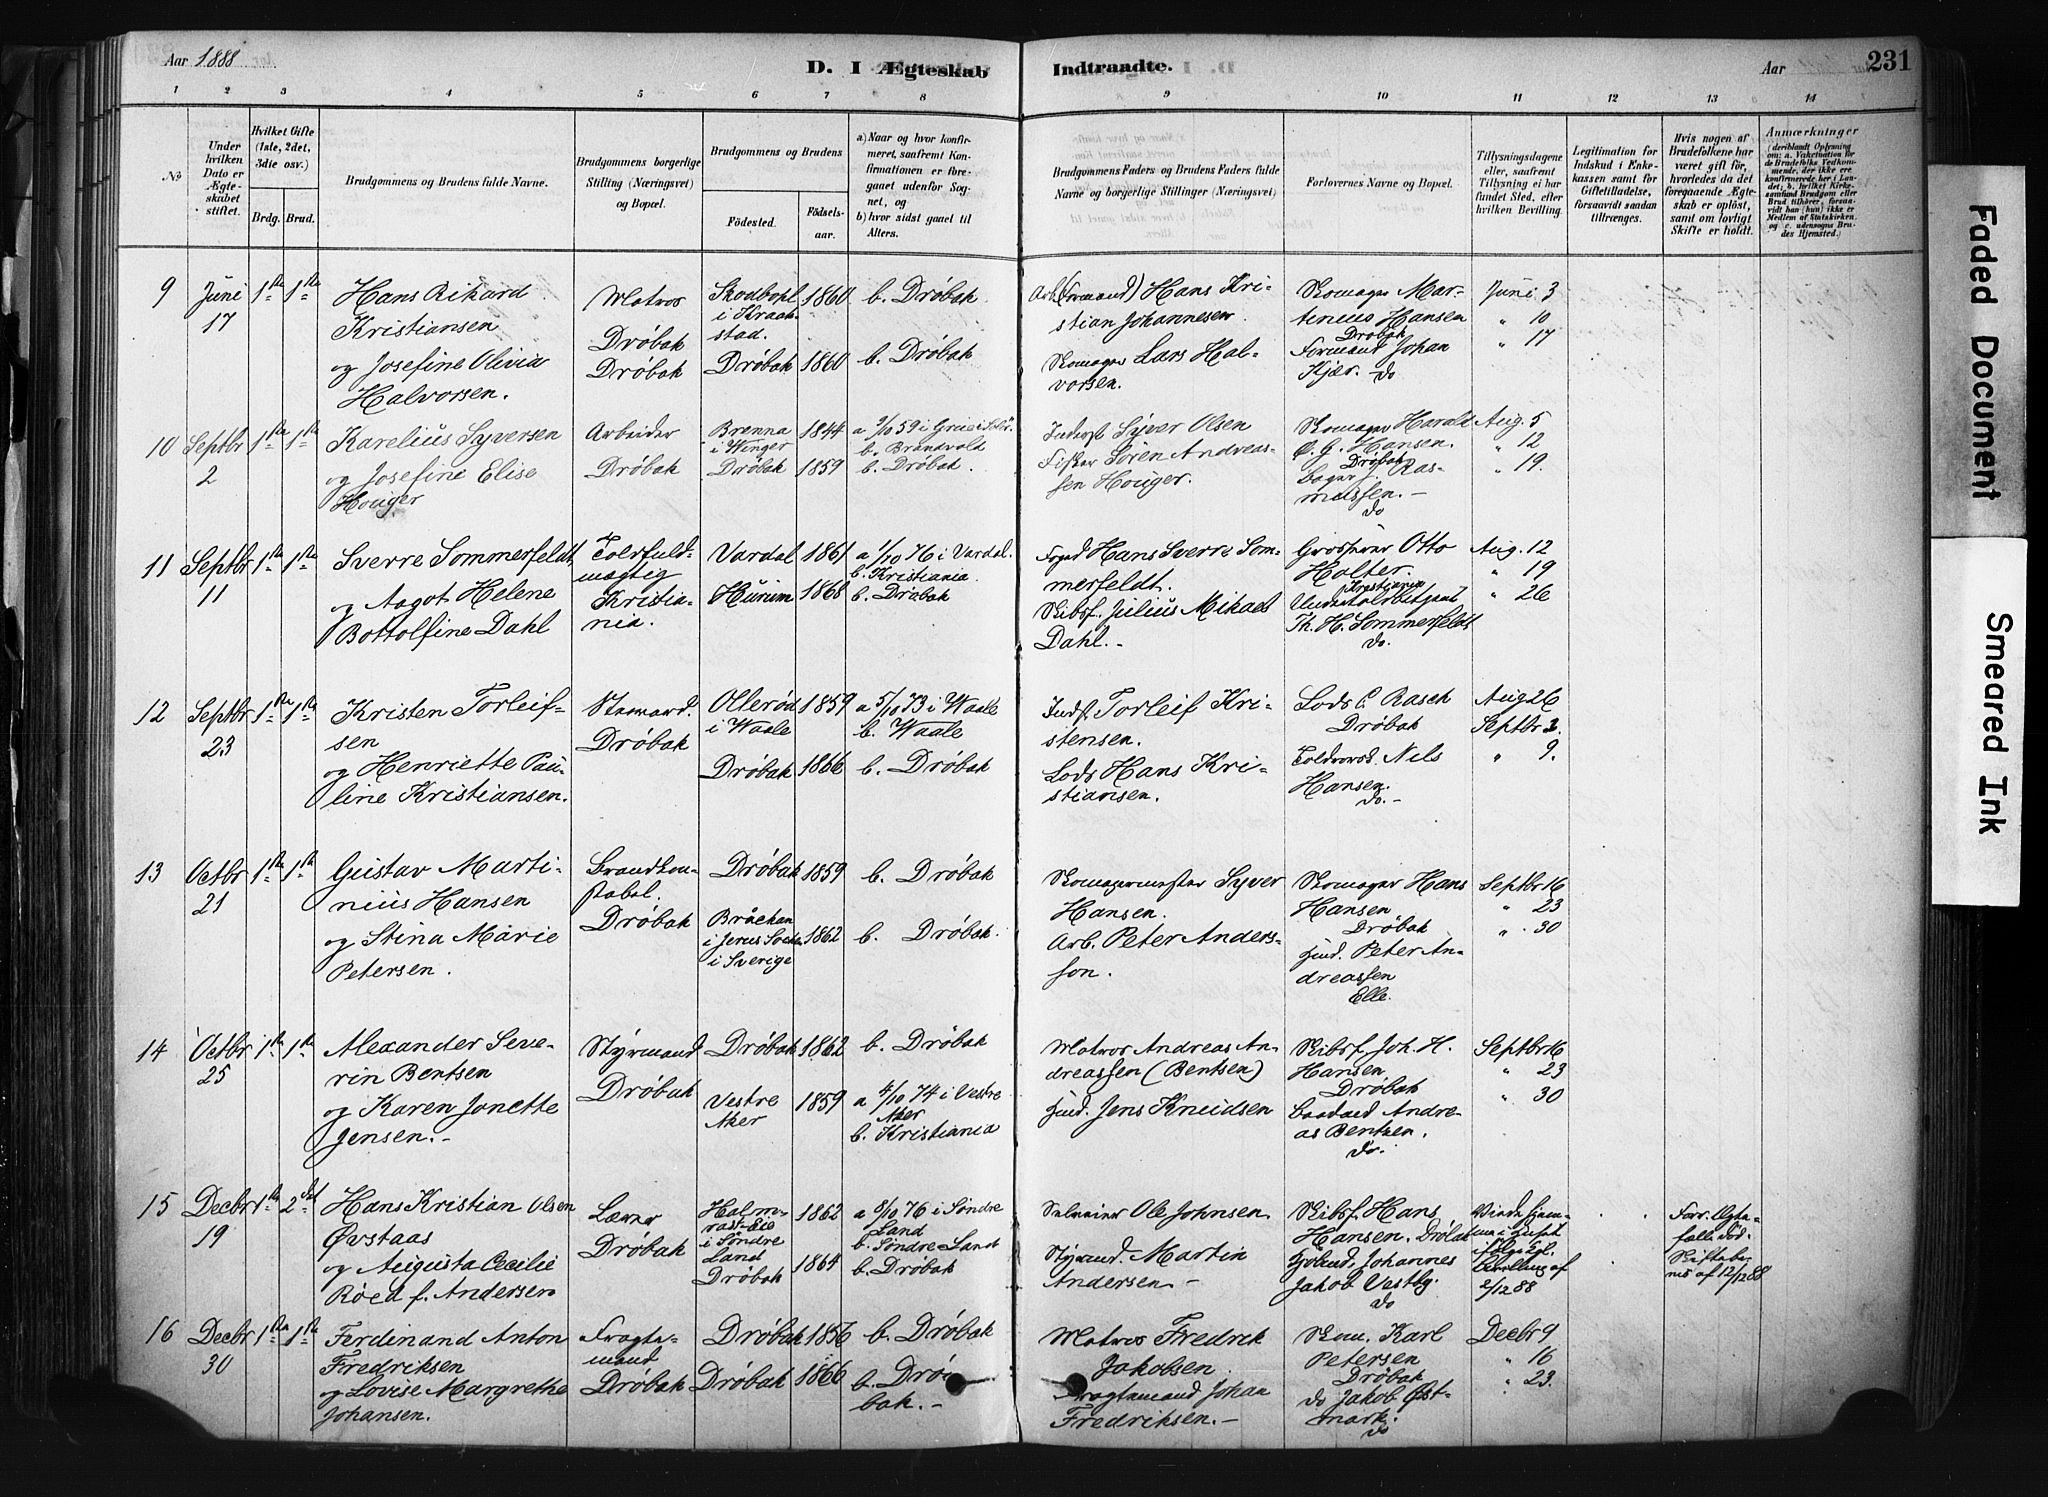 Aar 1888
D. I Ægteskab Indtraadte.
Aar
231
1 2 3 4 5 6 7 8 9 10 11 12 13 14
No
Under hvilken Dato er Ægteskabet stiftet.
Hvilket Gifte (1ste, 2det, 3die osv.)
Brdg. Brud.
Brudgommens og Brudens fulde Navne.
Brudgommens borgerlige Stilling (Næringsvei) og Bopæl.
Brudgommens og Brudens
Födested. Födselsaar.
a) Naar og hvor konfirmeret, saafremt Konfirmationen er foregaaet udenfor Sognet, og
b) hvor sidst gaaet til Alters.
Brudgommens Faders og Brudens Faders fulde Navne og borgerlige Stillinger (Næringsvei)
Forlovernes Navne og Bopæl.
Tillysningsdagene eller, saafremt Tillysning ei har fundet Sted, efter hvilken Bevilling.
Legitimation for Indskud i Enkekassen samt for Giftetilladelse, forsaavidt saadan tiltrænges.
Hvis nogen af Brudefolkene har været gift før, hvorledes da det foregaaende Ægteskab er oplöst, samt om lovligt Skifte er holdt.
Anmærkninger
(deriblandt Oplysning om: a. Vakcination for de Brudefolks Vedkommende, der ikke ere konfirmerede her i Landet; b. hvilket Kirkesamfund Brudgom eller Brud tilhörer, forsaavidt han (hun) ikke er Medlem af Statskirken, og c. udensogns Brudes Hjemsted.)
9 Juni 17 1ste 1ste
Hans Rikard
Kristiansen
og Josefine Olivia
Halvorsen.
Matros
Drøbak
Drøbak
Skodbøhl
i Kraakstad. 1860
Drøbak 1860
b. Drøbak
b. Drøbak
Arb.(Formand) Hans Kristian Johannesen.
Skomager Lars Halvorsen.
Skomager Martinius Hansen
Drøbak
Formand Johan
Kjær. do
Juni 3
" 10
" 17
10 Septbr 2 1ste 1ste
Karelius Syversen
og Josefine Elise
Houger
Arbeider
Drøbak
Brenna
i Winger 1844
Drøbak 1859
b. Brandvold
b. Drøbak.
Inderst Syver Olsen
Fisker Sören Andreassen Houger.
Skomager Harald
C. G. Hansen.
Drøbak
J. Rasmussen. -
do
Aug. 5
" 12
" 19.
11 Septbr 11 1ste 1ste
Sverre Sommerfeldt
og Aagot Helene
Bottolfine Dahl
Toldfuldmægtig
Kristiania.
Vardal 1861
Hurum 1868
a 1/10 76 i Vardal.
b. Kristiania
b. Drøbak
Hans Sverre Sommerfeldt.
Skibsf. Julius Mikael
Dahl. -
Grosserer Otto
Holter.
Kristiania
Th. H. Sommerfeldt
do.
Aug. 12
" 19
" 26
12 Septbr 23 1ste 1ste
Kristen Torleifsen
og Henriette Pauline Kristiansen.
Drøbak
Ollerød
i Waale 1859
Drøbak 1866
a 5/10 73 i Waale
b. Waale
b. Drøbak
Indst. Torleif Kristensen.
Lods Hans Kristiansen.
Lods C Rasch
Drøbak
Nils
Hansen.
do. -
Aug 26
Septbr 2.
" 9.
13 Octbr 21 1ste 1ste
Gustav Martinius Hansen
og Stina Marie
Petersen.
Brandkonstabel.
Drøbak
Drøbak 1859
i Sverige 1862
b. Drøbak
b. Drøbak.
Skomagermester Syver
Hansen.
Arb. Peter Andersson.
Skomager Hans
Hansen
Drøbak
Gjud. Peter Andreassen
Elle.
Septbr 16
" 23
" 30
14 Octbr 25 1ste 1ste
Alexander Severin Bentsen
og Karen Jonette
Jensen. -
Styrmand
Drøbak
Drøbak 1862
Vestre
Aker 1859
b. Drøbak
a 4/10 74 i Vestre
Aker
b. Kristiania
Matros Andreas Andreassen (Bentsen)
Gjud. Jens Knudsen
Skibsf. Joh. H.
Hansen
Drøbak
Andreas Bentzen.
do.
Septbr 16
" 23
" 30
15 Decbr 19 1ste 2det
Hans Kristian Olsen
Øvstaas
og Augusta Cecilie
Røed f. Andersen
Lærer
Drøbak
i Söndre
Land 1862
Drøbak 1864
a 8/10 76 i Söndre
Land
b. Söndre Land
b. Drøbak
Selveier Ole Johnsen.
Styrmd. Martin
Andersen. -
Skibsf. Hans
Hansen. Drøbak
Johannes
Jakob Vestby.
do
Viede hjemme i Huset
ifølge Kgl.
Bevilling af
2/12 88
Forr. Ægtefælle død.
Skiftebevis af 12/12 88
16 Decbr 30 1ste 1ste
Ferdinand Anton
Fredriksen
og Lovise Margrethe
Johansen.
Fragtemand
Drøbak
Drøbak 1856
Drøbak 1866
b. Drøbak
b. Drøbak. -
Matros Fredrik
Jakobsen
Fragtemand Johan
Fredriksen. -
Skom. Karl
Petersen
Drøbak
do Jakob Østmark.
do
Decbr 9
" 16
" 23.
Faded Document
Smeared Ink